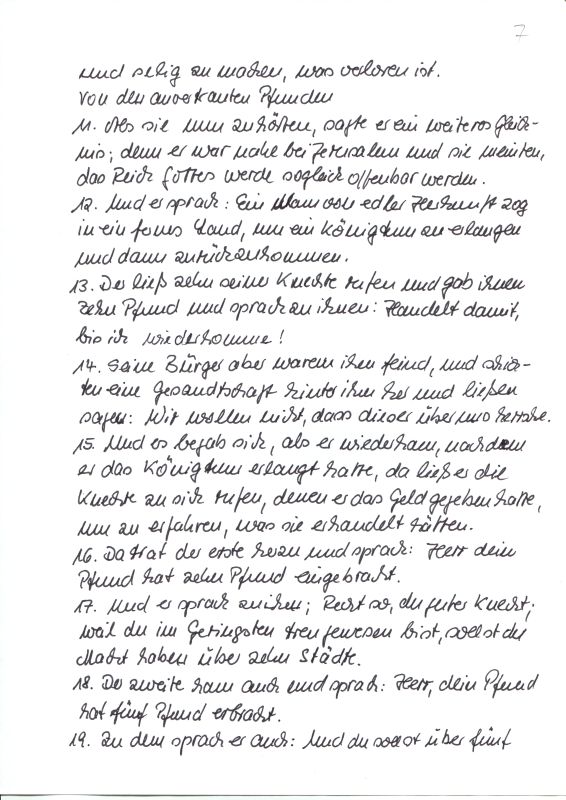 7
und selig zu machen, was verloren ist.
Von den anvertrauten Pfunden
11. Als sie nun zuhörten, sagte er ein weiteres Gleich-
nis; denn er war nahe bei Jerusalem und sie meinten,
das Reich Gottes werde sogleich offenbar werden.
12. Und er sprach: Ein Mann von edler Herkunft zog
in ein fernes Land, um ein Königtum zu erlangen
und dann zurückzukommen.
13. Der ließ zehn seiner Knechte rufen und gab ihnen
zehn Pfund und sprach zu ihnen: Handelt damit,
bis ich wiederkomme!
14. Seine Bürger aber waren ihm feind, und schick-
ten eine Gesandtschaft hinter ihm her und ließen
sagen: Wir wollen nicht, dass dieser über uns herrsche.
15. Und es begab sich, als er wiederkam, nachdem
er das Königtum erlangt hatte, da ließ er die
Knechte zu sich rufen, denen er das Geld gegeben hatte,
um zu erfahren, was sie erhandelt hätten.
16. Da trat der erste heran und sprach: Herr dein
Pfund hat zehn Pfund eingebracht.
17. Und er sprach zu ihm; Recht so, du guter Knecht;
weil du im Geringsten treu gewesen bist, sollst du
Macht haben über zehn Städte.
18. Der zweite kam auch und sprach: Herr, dein Pfund
hat fünf Pfund erbracht.
19. Zu dem sprach er auch: Und du sollst über fünf